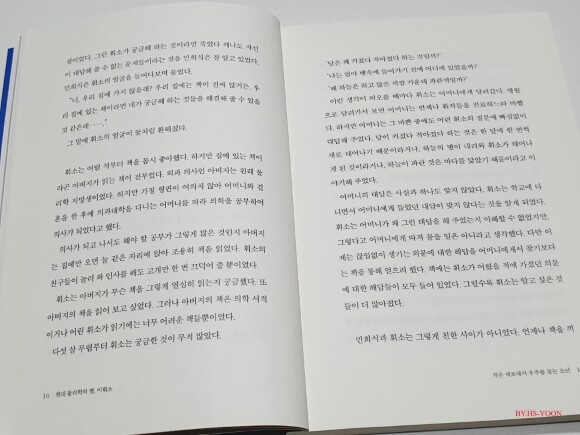 생이었다. 그런 휘소가 궁금해 하는 것이라면 죽었다 깨나도 자신
이 대답해 줄 수 없는 문제들이라는 것을 민희식은 잘 알고 있었다.
민희식은 휘소의 얼굴을 들여다보며 물었다.
"너, 우리 집에 가지 않을래? 우리 집에는 책이 진짜 많거든. 우
리 집에 있는 책이라면 네가 궁금해 하는 것들을 해결해 줄 수 있을
것 같은데……."
그 말에 휘소의 얼굴이 꽃처럼 환해졌다.
휘소는 어릴 적부터 책을 몹시 좋아했다. 하지만 집에 있는 책이
라곤 아버지가 읽는 책이 전부였다. 외과 의사인 아버지는 원래 물
리학 지망생이었다. 하지만 가정 형편이 여의치 않아 어머니와 결
혼을 한 후에 의과대학을 다니는 어머니를 따라 의학을 공부하여
의사가 되었다고 했다.
의사가 되고 나서도 해야 할 공부가 그렇게 많은 것인지 아버지
는 집에만 오면 늘 같은 자리에 앉아 조용히 책을 읽었다. 휘소의
친구들이 놀러 와 인사를 해도 고개만 한 번 끄덕여 줄 뿐이었다.
휘소는 아버지가 무슨 책을 그렇게 열심히 읽는지 궁금했다. 또
아버지의 책을 읽어 보고 싶었다. 그러나 아버지의 책은 의학 서적
이거나 어린 휘소가 읽기에는 너무 어려운 책들뿐이었다.
다섯 살 무렵부터 휘소는 궁금한 것이 무척 많았다.
10 현대 물리학의 별, 이휘소
'달은 왜 커졌다 작아졌다 하는 것일까?'
'나는 엄마 뱃속에 들어가기 전에 어디에 있었을까?'
'왜 하늘은 하고 많은 색깔 가운데 파란색일까?'
이런 생각이 떠오를 때마다 휘소는 어머니에게 달려갔다. 병원
으로 달려가서 보면 어머니는 언제나 환자들을 진료하느라 바빴
다. 하지만 어머니는 그 바쁜 중에도 어린 휘소의 질문에 빠짐없이
대답해 주었다. 달이 커졌다 작아졌다 하는 것은 한 달에 한 번씩
세로 태어나기 때문이라거나, 하늘의 별이 내려와 휘소가 태어나
게 된 것이라거나, 하늘이 파란 것은 바다를 닮았기 때문이라고 이
야기해 주었다.
어머니의 대답은 사실과 하나도 맞지 않았다. 휘소는 학교에 다
니면서 어머니에게 들었던 대답이 맞지 않다는 것을 알게 되었다.
휘소는 어머니가 왜 그런 대답을 해 주었는지 이해할 수 없었지만,
그렇다고 어머니에게 따져 물을 일은 아니라고 생각했다. 다만 이
제는 끊임없이 생기는 의문에 대한 해답을 어머니에게서 찾기보다
는 책을 통해 얻으려 했다. 책에는 휘소가 어렸을 적에 가졌던 의문
에 대한 해답들이 모두 들어 있었다. 그럴수록 휘소는 알고 싶은 것
들이 더 많아졌다.
민희식과 휘소는 그렇게 친한 사이가 아니었다. 언제나 책을 끼
작은 세포에서 우주를 찾는 소년
BY.HS-YOON